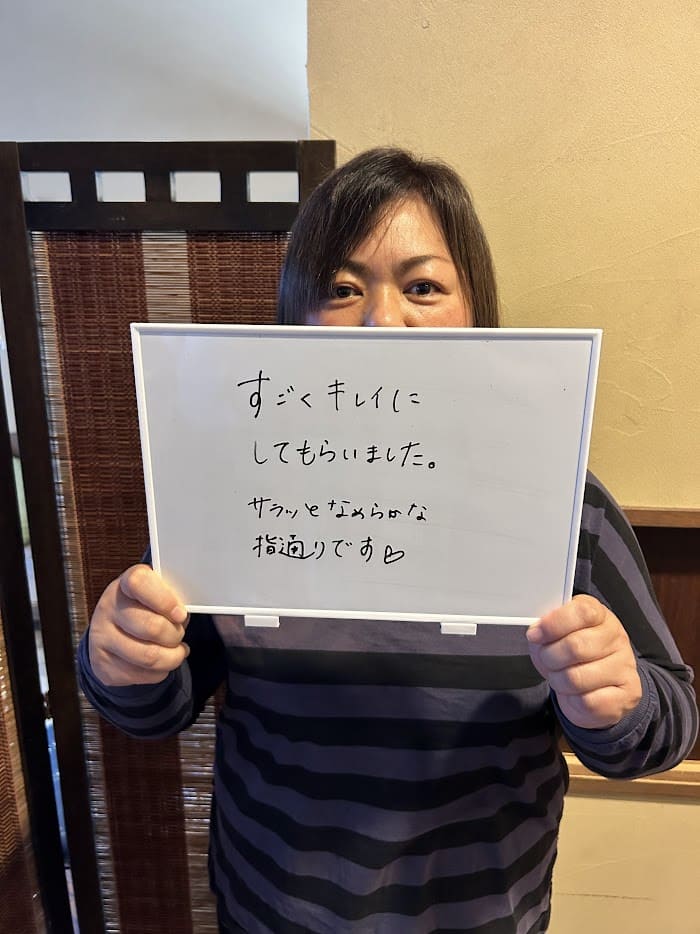 すごくキレイに
してもらいました。
サラッとなめらかな
指通りです♡